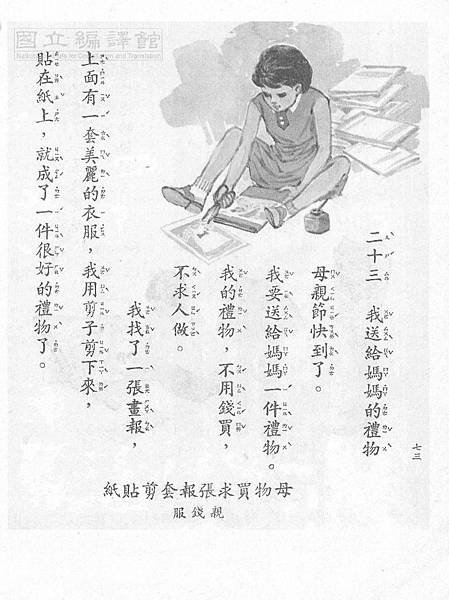 國立編譯館
二十三 我送給媽媽的禮物
母親節快到了。
我要送給媽媽一件禮物。
我的禮物，不用錢買，
不求人做。
我找了一張畫報，
上面有一套美麗的衣服，我用剪子剪下來，
貼在紙上，就成了一件很好的禮物了。
母物買求張報套剪貼紙
親錢服
七三